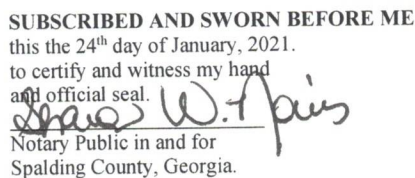 SUBSCRIBED AND SWORN BEFORE ME
this the 24th day of January, 2021.
to certify and witness my hand
and official seal.
W.
Notary Public in and for
Spalding County, Georgia.